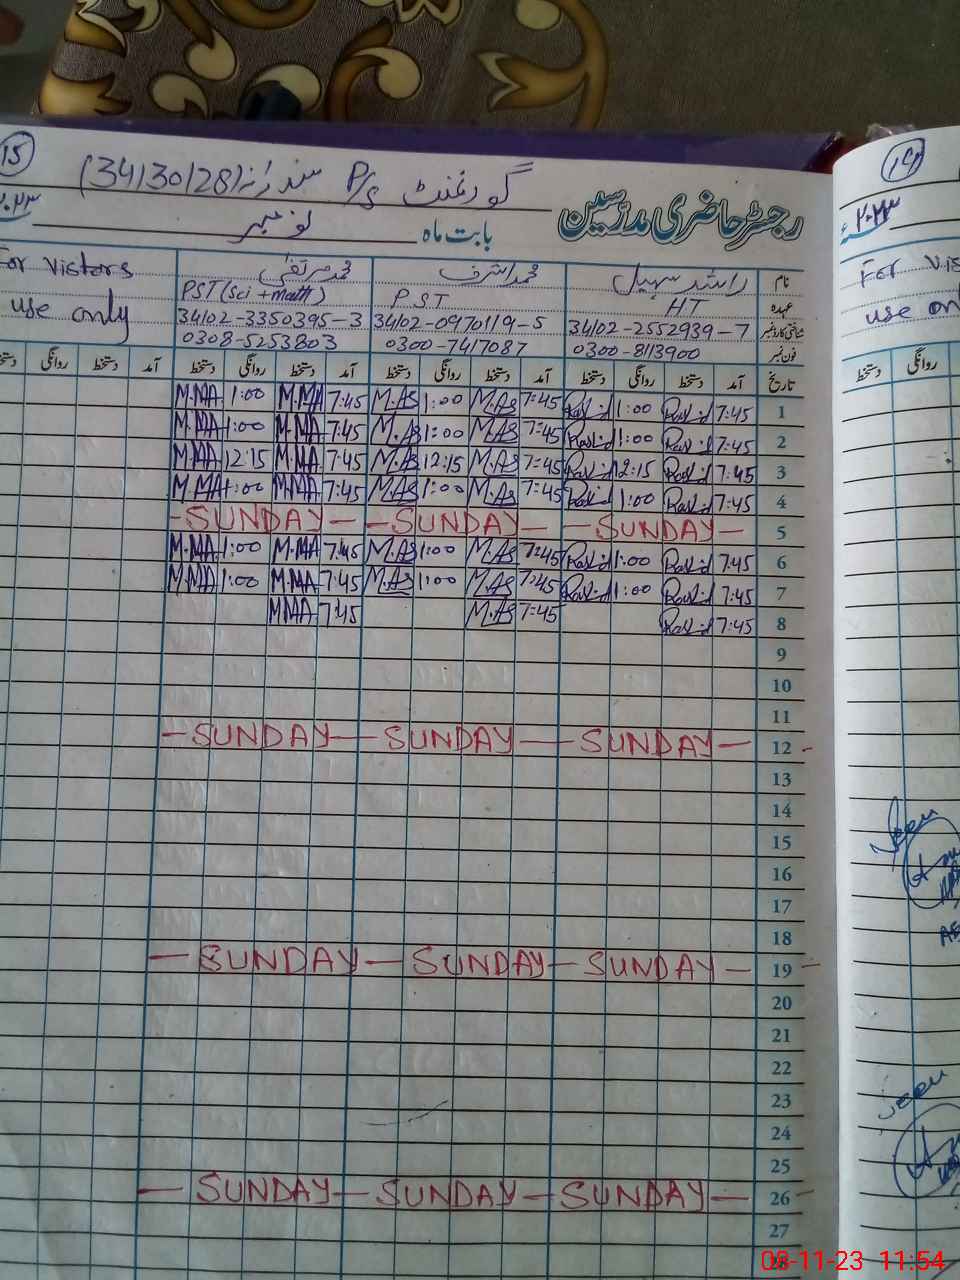 15
گورنمنٹ P/S سندرانہ (34130128)
رجسٹر حاضری مدرسین
بابت ماہ نومبر ۲۰۲۳ء
نام راشد سہیل محمد اشرف محمد مرتضیٰ For Vistors
عہدہ HT PST PST (Sci + math) use only
شناختی کارڈ نمبر 34102-2552939-7 34102-0970119-5 34102-3350395-3
فون نمبر 0300-8113900 0300-7417087 0308-5253803
تاریخ آمد دستخط روانگی دستخط آمد دستخط روانگی دستخط آمد دستخط روانگی دستخط آمد دستخط روانگی دستخط
1 7:45 Rashid 1:00 Rashid 7:45 M.As 1:00 M.As 7:45 M.MA 1:00 M.MA
2 7:45 Rashid 1:00 Rashid 7:45 M.As 1:00 M.As 7:45 M.MA 1:00 M.MA
3 7:45 Rashid 12:15 Rashid 7:45 M.As 12:15 M.As 7:45 M.MA 12:15 M.MA
4 7:45 Rashid 1:00 Rashid 7:45 M.As 1:00 M.As 7:45 M.MA 1:00 M.MA
5 - SUNDAY - - SUNDAY - - SUNDAY -
6 7:45 Rashid 1:00 Rashid 7:45 M.As 1:00 M.As 7:45 M.MA 1:00 M.MA
7 7:45 Rashid 1:00 Rashid 7:45 M.As 1:00 M.As 7:45 M.MA 1:00 M.MA
8 7:45 Rashid 7:45 M.As 7:45 M.MA
9
10
11
12 - SUNDAY - SUNDAY - SUNDAY -
13
14
15
16
17
18
19 - SUNDAY - SUNDAY - SUNDAY -
20
21
22
23
24
25
26 - SUNDAY - SUNDAY - SUNDAY -
27
14
۲۰۲۳ء
For Vis
use on
روانگی دستخط
Seen
Seen
08-11-23 11:54